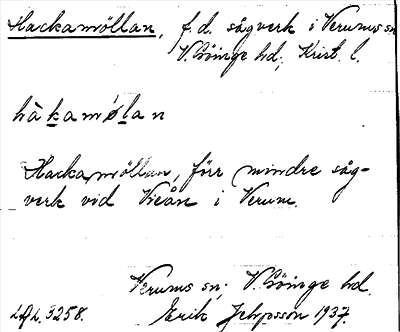 Hackamöllan, f.d. sågverk i Verums sn
V. Göinge hd; Krist. l.
håkamölan
Hackamöllan, förr mindre såg-
verk vid Vieån i Verum.
Verums sn; V. Göinge hd.
3258. Erik Jeppsson 1937.